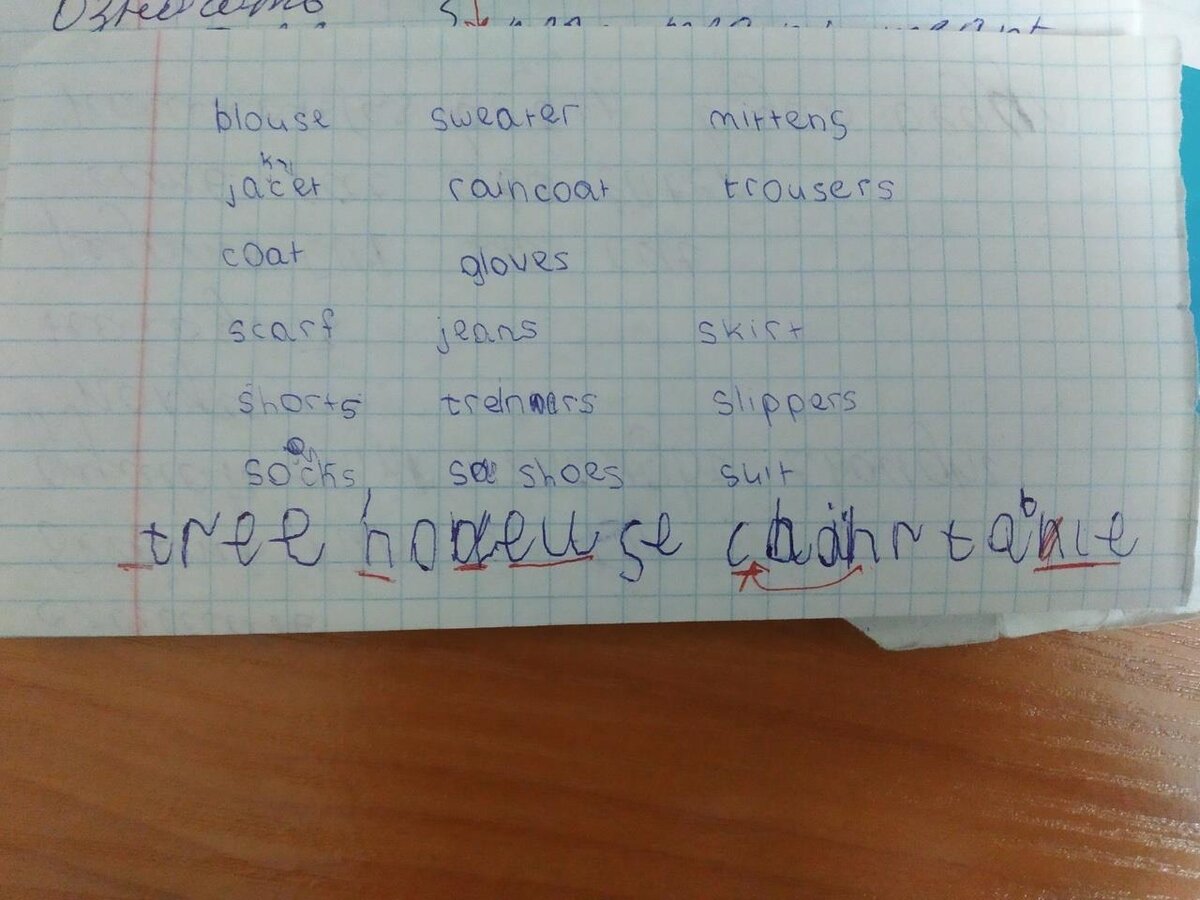 Означать
blouse sweater mittens
jacket raincoat trousers
coat gloves
scarf jeans skirt
shorts treiners slippers
socks shoes suit
tree house chair table